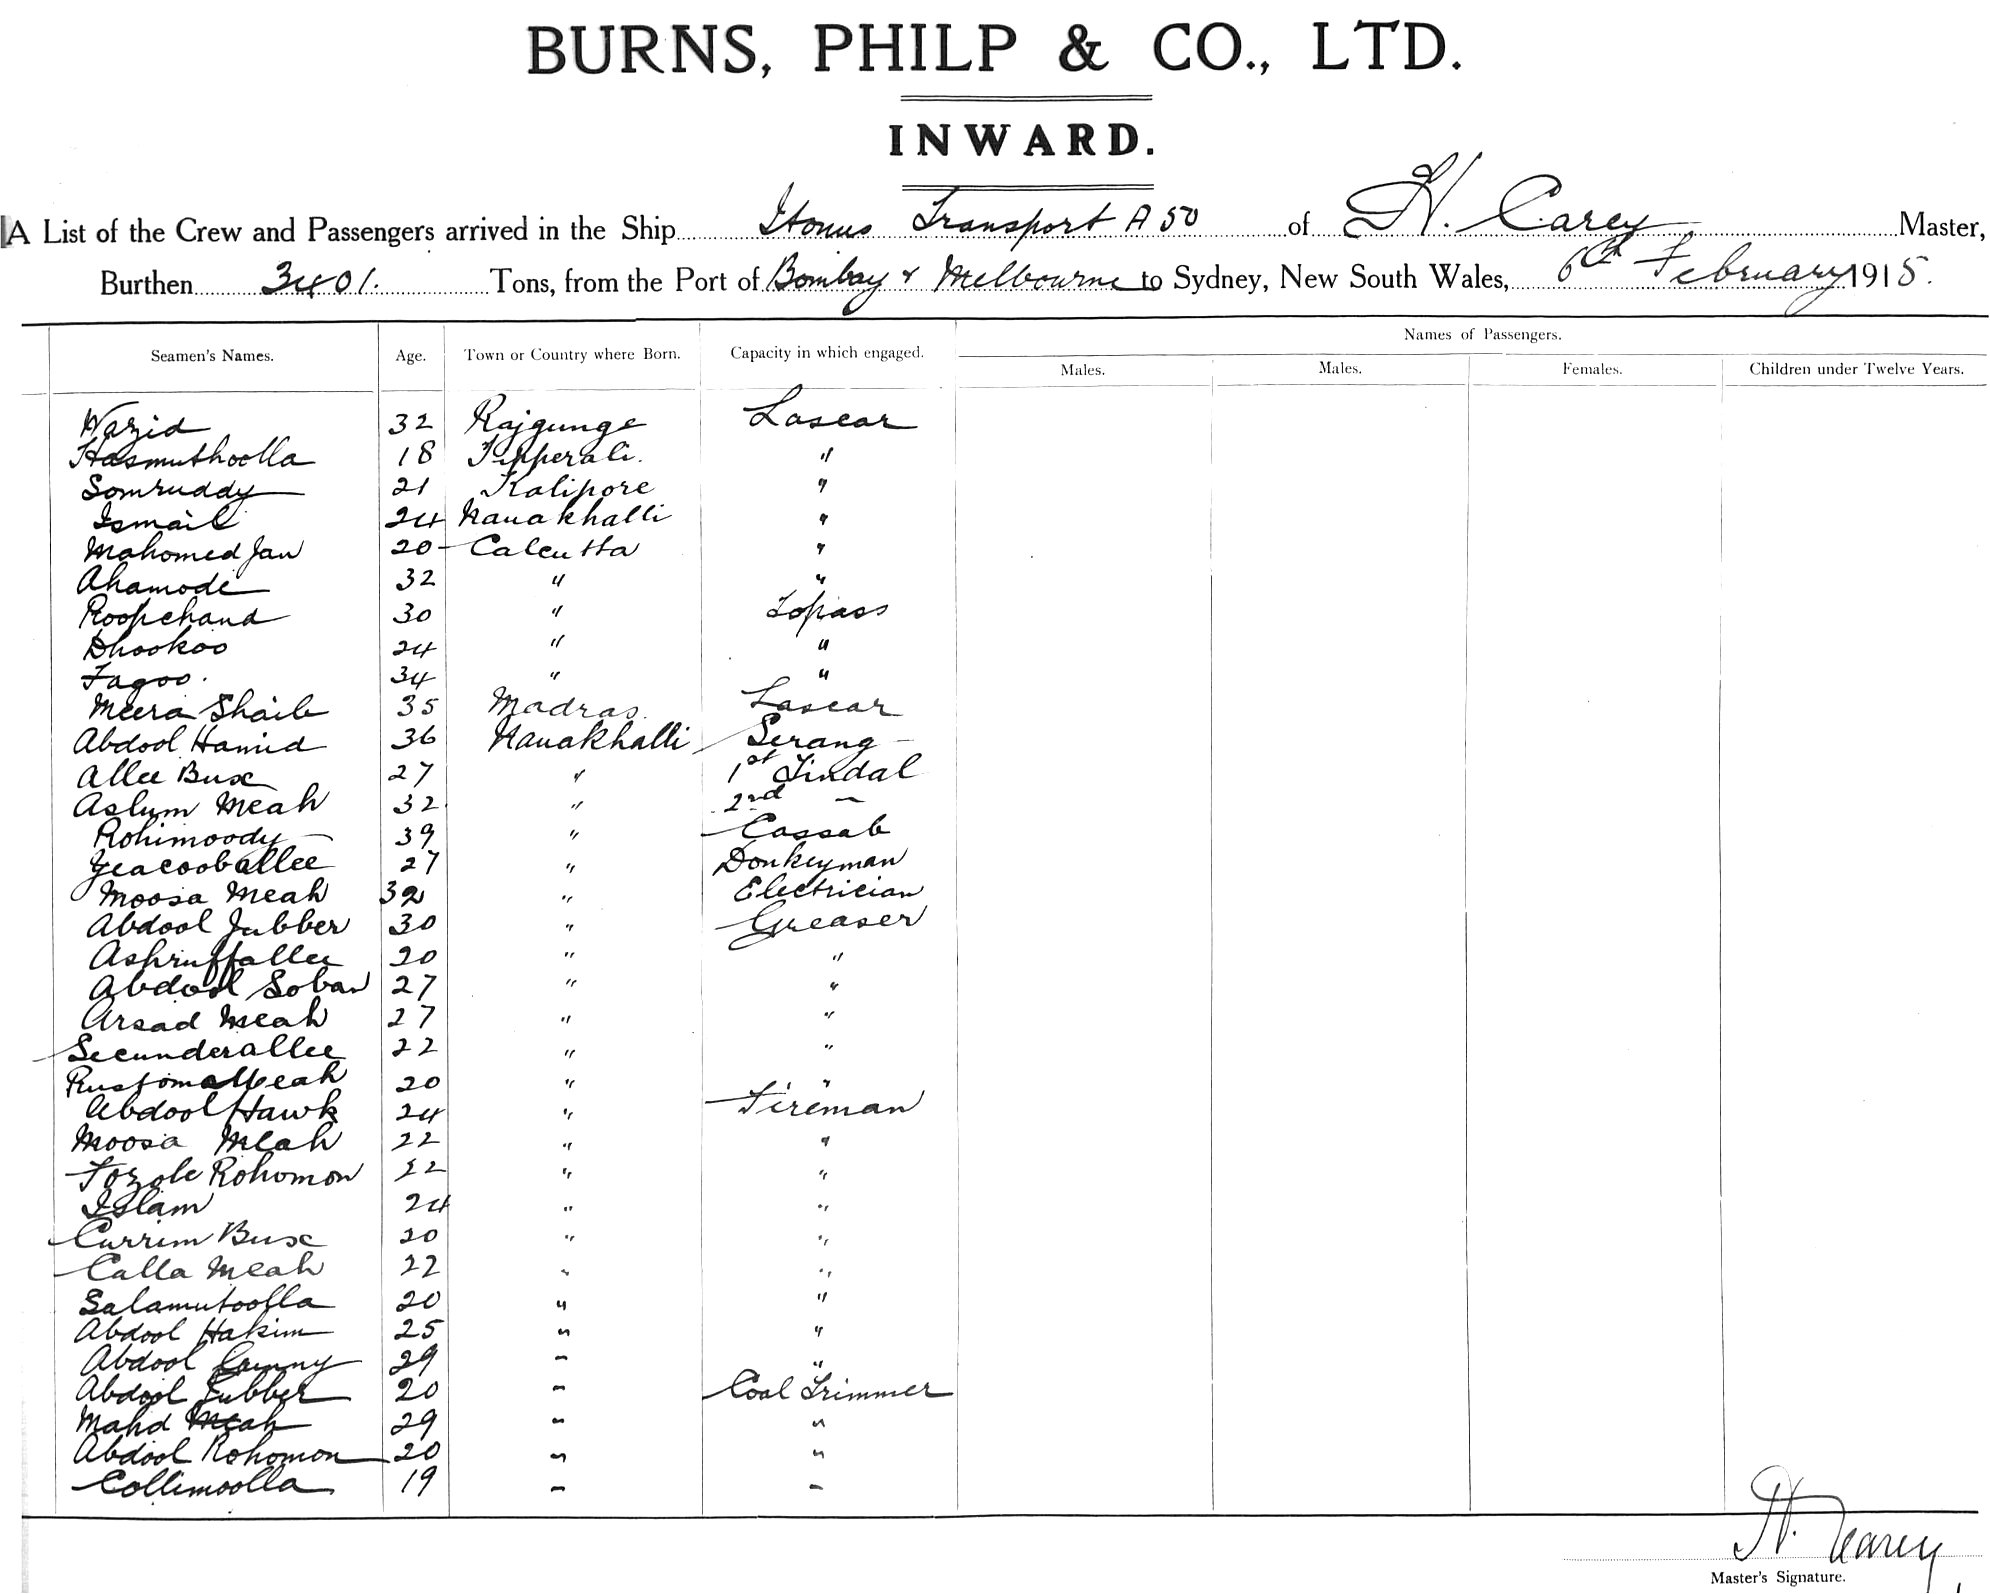 BURNS, PHILP & CO., LTD.
INWARD.
A List of the Crew and Passengers arrived in the Ship Itonus Transport A 50 of H. Carey Master,
Burthen 3401. Tons, from the Port of Bombay & Melbourne to Sydney, New South Wales, 6th February 1915.
Names of Passengers.
Seamen's Names. Age. Town or Country where Born. Capacity in which engaged. Males. Males. Females. Children under Twelve Years.
Wazid 32 Rajgunge Lascar
Hasmuthoolla 18 Tipperali. "
Somruddy 21 Kalipore "
Ismail 24 Nauakhalli "
Mahomed Jan 20 Calcutta "
Ahamode 32 " "
Roopchand 30 " Topass
Dhookoo 24 " "
Fagoo. 34 " "
Meera Shaib 35 Madras. Lascar
Abdool Hamid 36 Nauakhalli Serang
Allee Bux 27 " 1st Tindal
Aslum Meah 32 " 2nd -
Rohimoody 39 " Cassab
Yeacooballee 27 " Donkeyman
Moosa Meah 32 " Electrician
Abdool Jubber 30 " Greaser
Ashruffallee 20 " "
Abdool Soban 27 " "
Arsad Meah 27 " "
Secunderallee 22 " "
Rustom Meah 20 " "
Abdool Hawk 24 " Fireman
Moosa Meah 22 " "
Fozole Rohomon 22 " "
Islam 24 " "
Currim Bux 20 " "
Calla Meah 22 " "
Salamutoolla 20 " "
Abdool Hakim 25 " "
Abdool Gunny 29 " "
Abdool Jubber 20 " Coal Trimmer
Mahd Meah 29 " "
Abdool Rohomon 20 " "
Collimoolla 19 " "
H. Carey
Master's Signature.